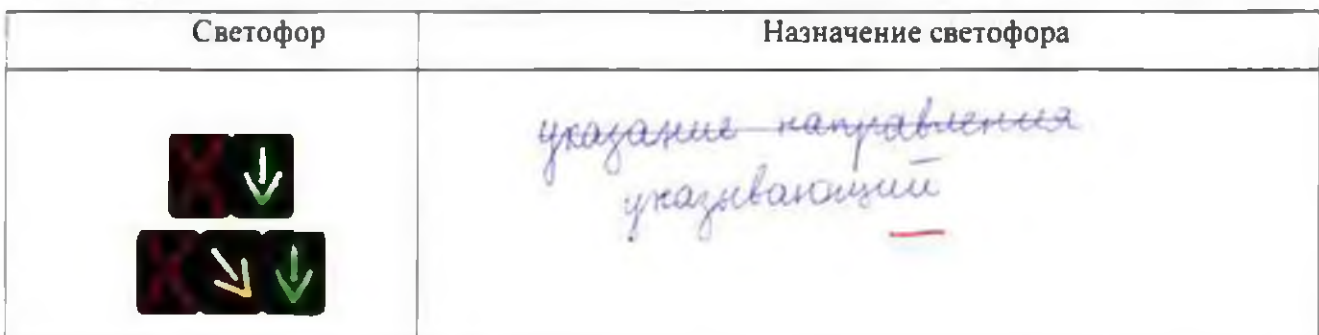 Светофор
Назначение светофора
указание направления
указывающий